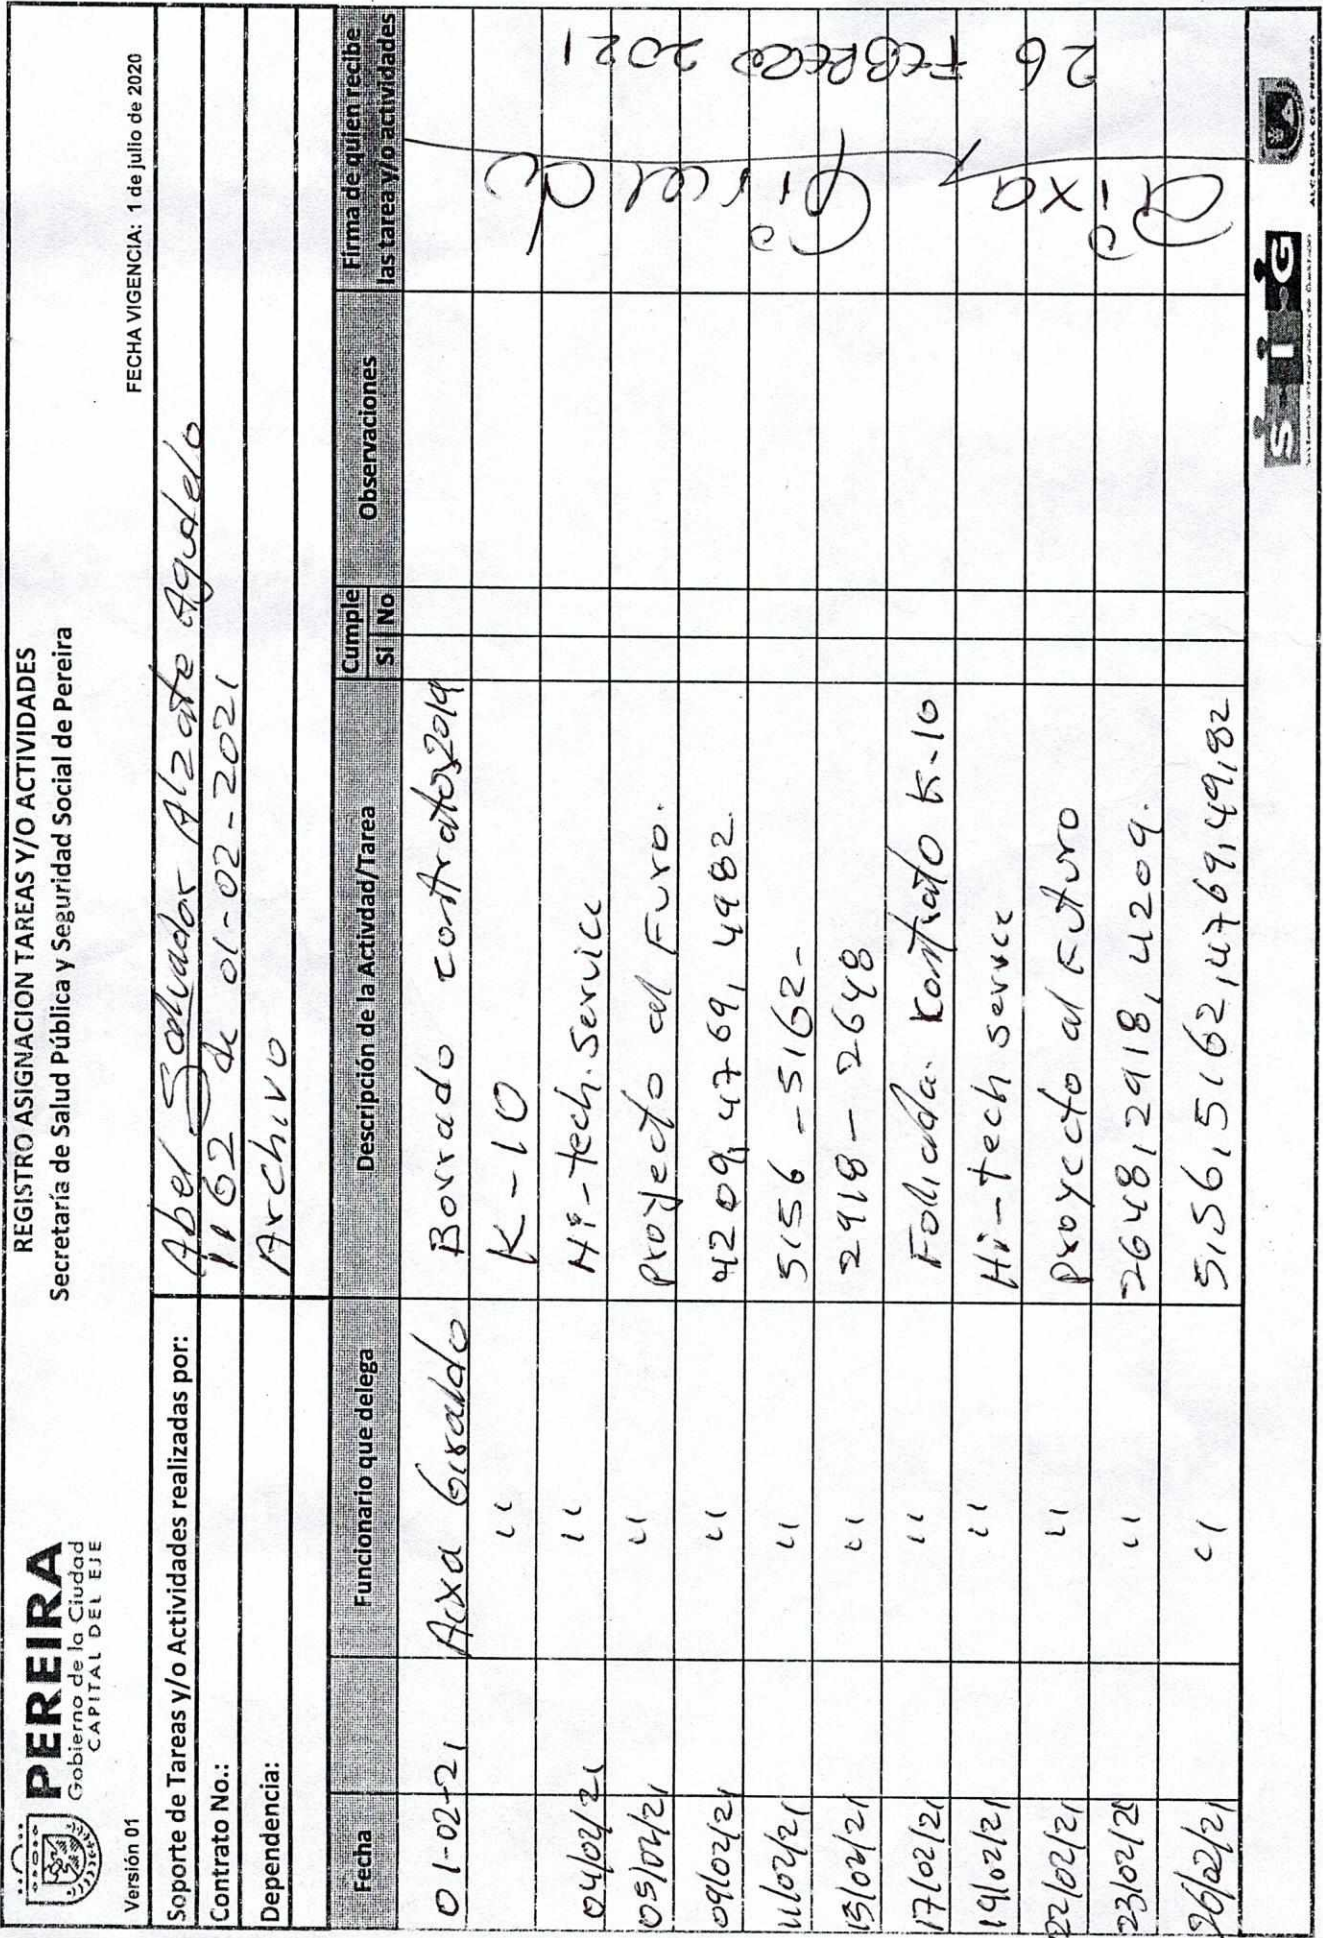 PEREIRA
Gobierno de la Ciudad
CAPITAL DEL EJE
REGISTRO ASIGNACION TAREAS Y/O ACTIVIDADES
Secretaría de Salud Pública y Seguridad Social de Pereira
Versión 01
FECHA VIGENCIA: 1 de julio de 2020
Soporte de Tareas y/o Actividades realizadas por: Abel Salvador Alzate Agudelo
Contrato No.: 1162 de 01-02-2021
Dependencia: Archivo
Fecha Funcionario que delega Descripción de la Activdad/Tarea Cumple Si No Observaciones Firma de quien recibe las tarea y/o actividades
01-02-21 Aixa Giraldo Borrado contratos 2019
" K-10
04/02/21 " Hi-tech.Service
05/02/21 " Proyecto al Furo.
09/02/21 " 4209, 4769, 4982
11/02/21 " 5156-5162-
15/02/21 " 2918-2648
17/02/21 " Foliada. Kontrato K-10
19/02/21 " Hi-tech service
22/02/21 " Proyecto al Futuro
23/02/21 " 2648, 2918, 4209.
26/02/21 " 5156, 5162, 4769, 49,82
Aixa Giraldo
26 FEBRERO 2021
S-I-G
Sistema Integrado de Gestión
ALCALDIA DE PEREIRA